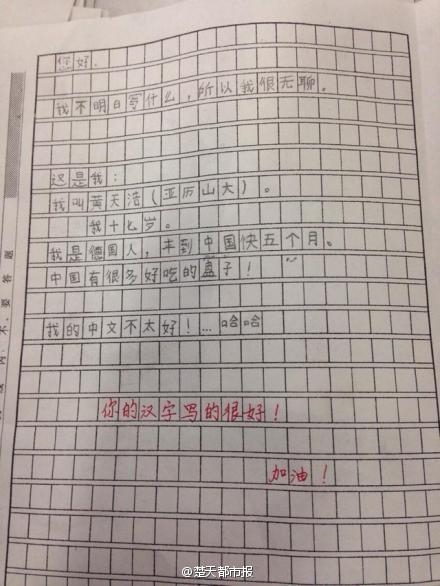 您好.
我不明白写什么，所以我很无聊。
这是我：
我叫黄天浩（亚历山大）。
我十七岁。
我是德国人，来到中国快五个月。
中国有很多好吃的盖子！
我的中文不太好！…哈哈
你的汉字写的很好！
加油！
内不要答题
@楚天都市报